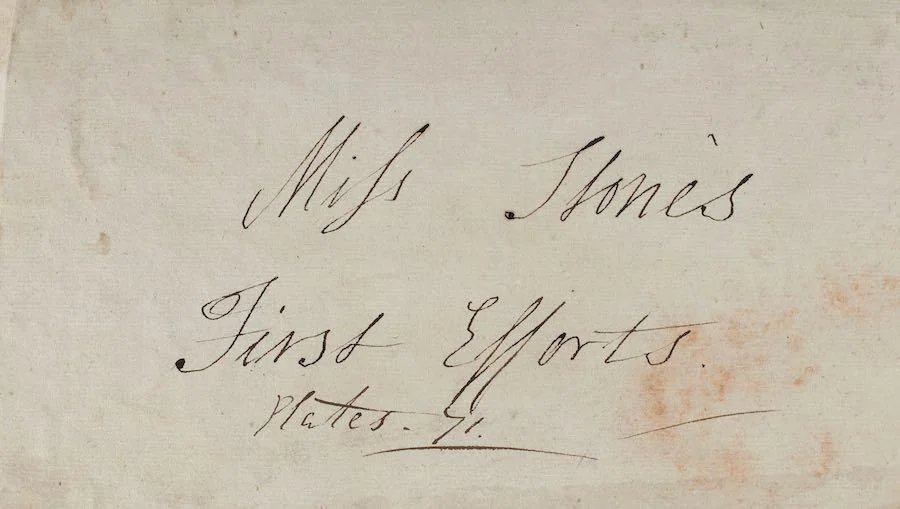 Miſs Stone's
First Efforts.
Plates. 71.